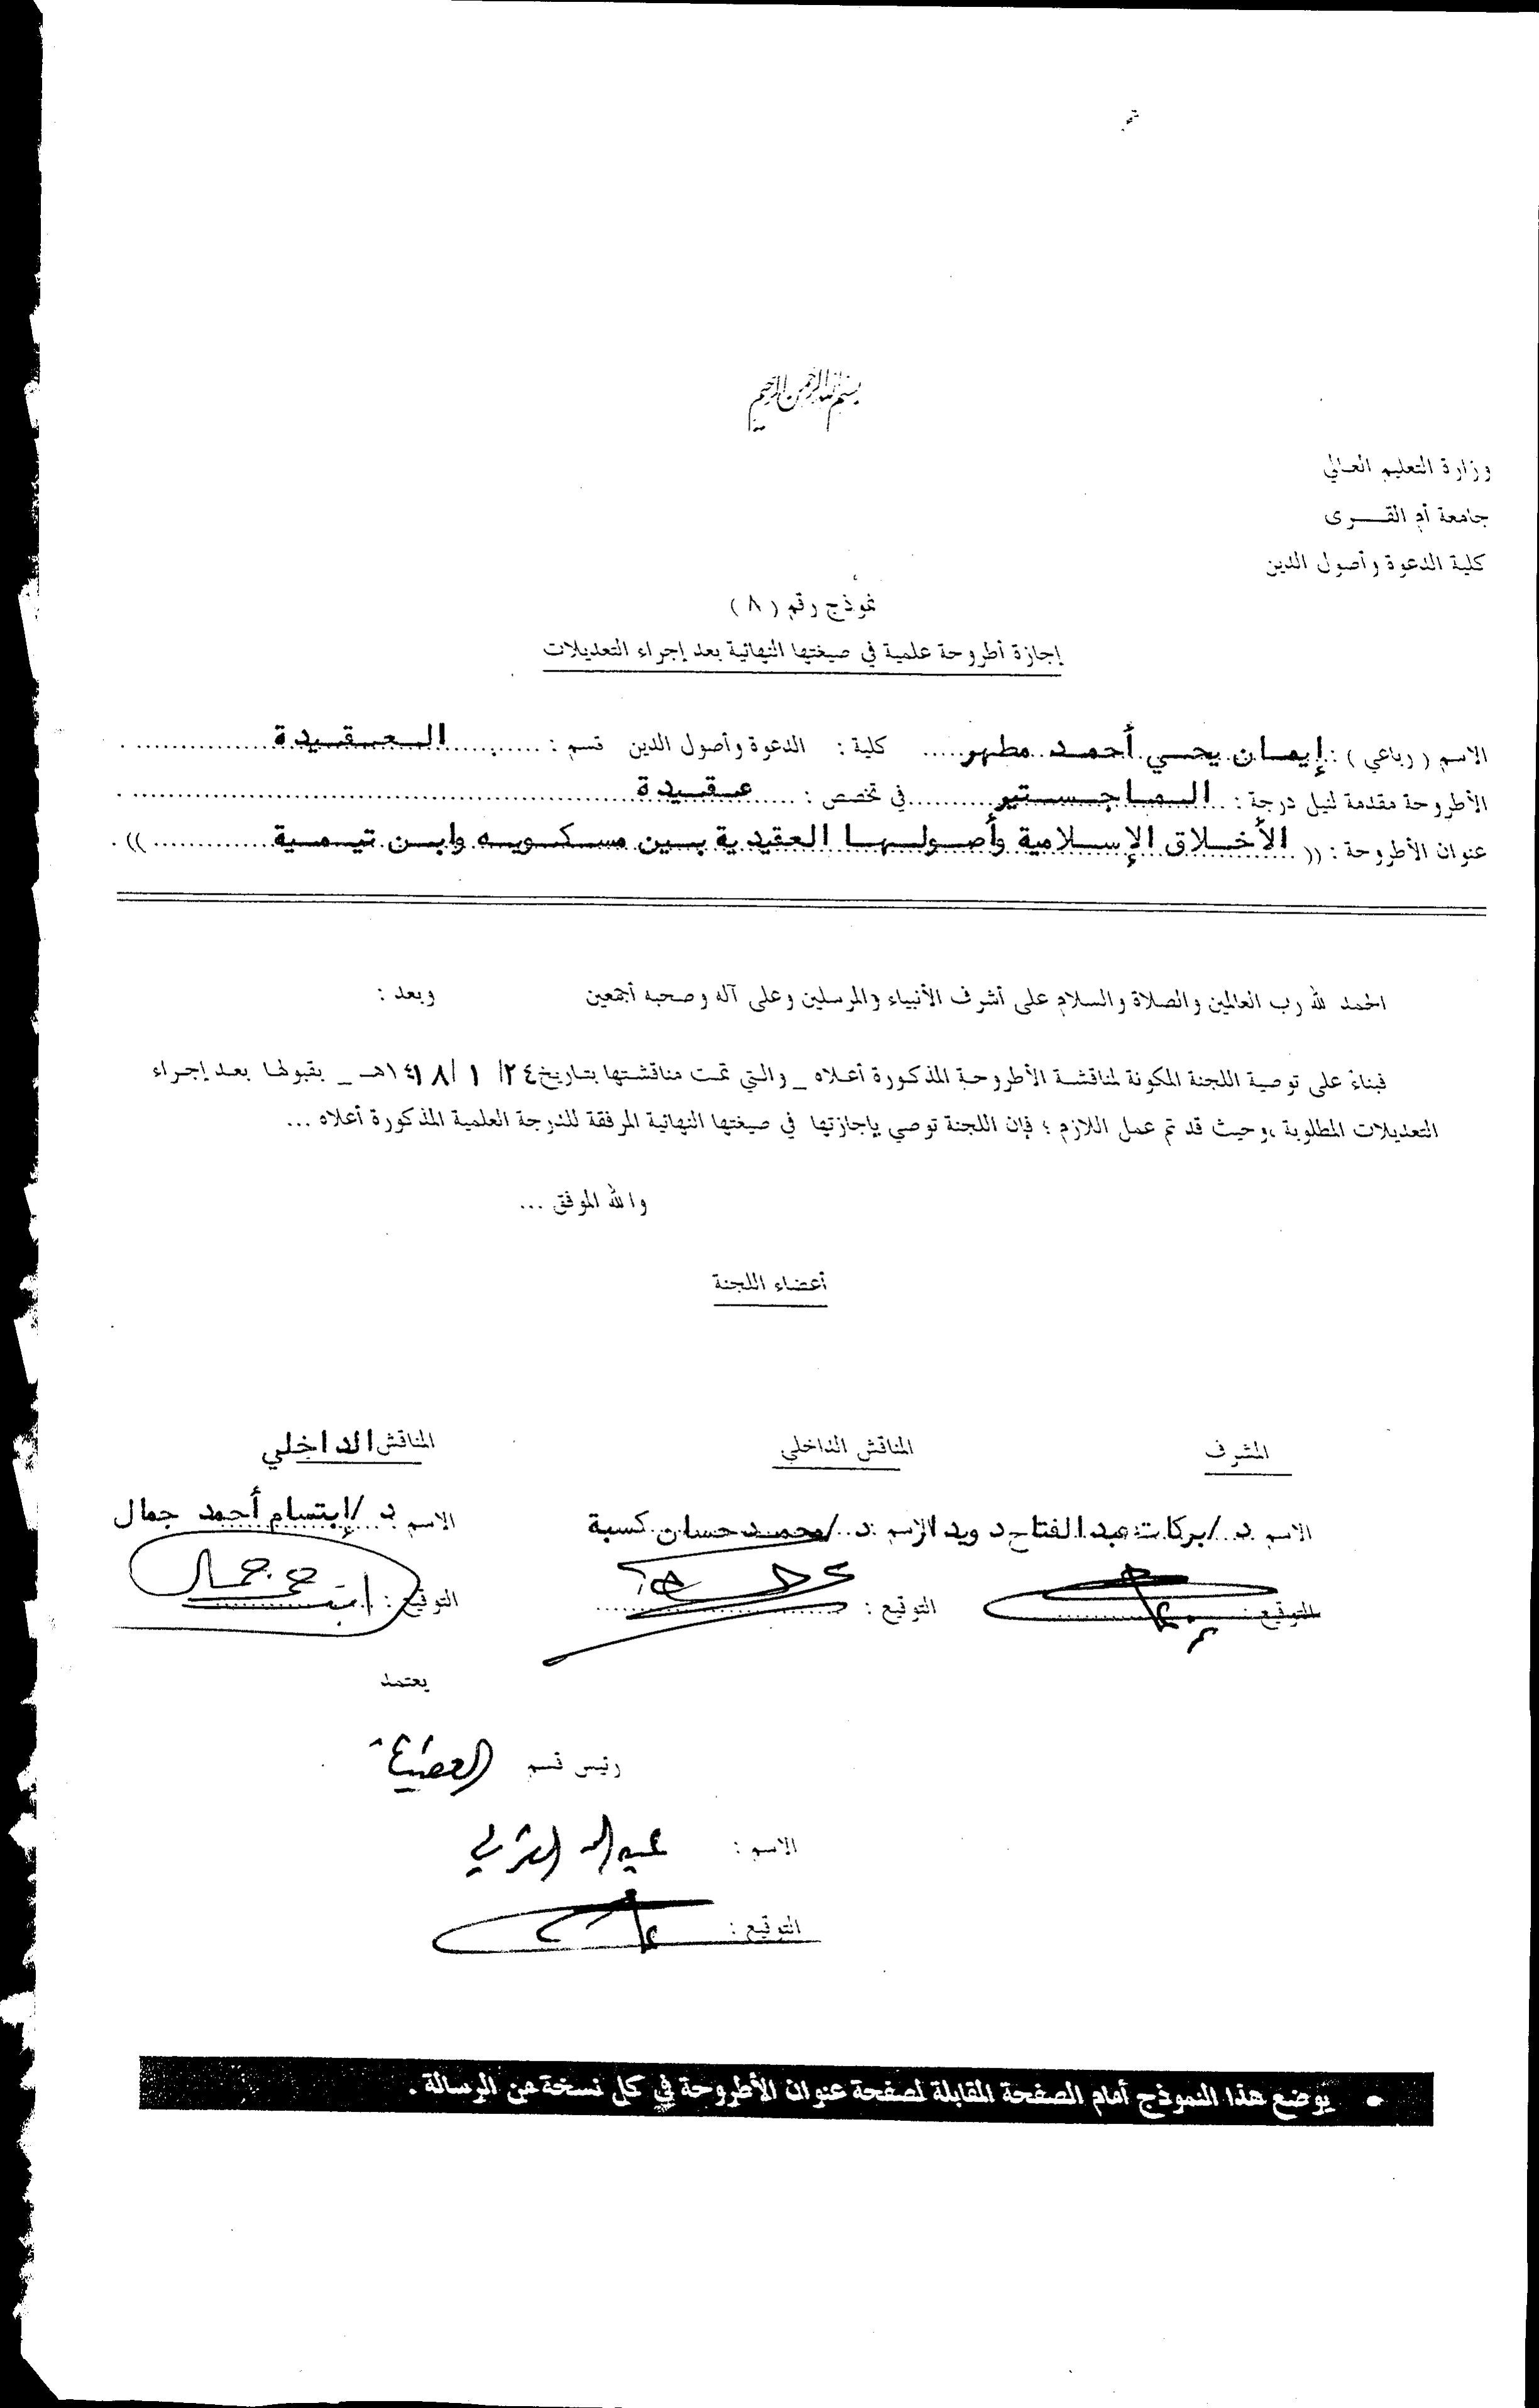 بسم الله الرحمن الرحيم
وزارة التعليم العالي
جامعة أم القـــرى
كلية الدعوة وأصول الدين
نموذج رقم ( ٨ )
إجازة أطروحة علمية في صيغتها النهائية بعد إجراء التعديلات
الاسم ( رباعي ) : إيمـان يحـيـي أحمـد مطهر ..... كلية : الدعوة وأصول الدين قسم : ........ الـعـقـيـدة ..........
الأطروحة مقدمة لنيل درجة : .. الـمـاجـسـتير .......... في تخصص : ...... عـقـيـدة ..........
عنوان الأطروحة : (( .. الأخـلاق الإسـلامية وأصـولـهـا العقيدية بـين مسـكـويـه وابـن تيـمـية .......... )) .
الحمد لله رب العالمين والصلاة والسلام على أشرف الأنبياء والمرسلين وعلى آله وصحبه أجمعين وبعد :
فبناءً على توصية اللجنة المكونة لمناقشة الأطروحة المذكورة أعلاه _ والتي تمت مناقشتها بتاريخ ٢٤/ ١ /١٤١٨هـ _ بقبولها بعد إجراء
التعديلات المطلوبة ،وحيث قد تم عمل اللازم ؛ فإن اللجنة توصي بإجازتها في صيغتها النهائية المرفقة للدرجة العلمية المذكورة أعلاه ...
والله الموفق ...
أعضاء اللجنة
المشرف المناقش الداخلي المناقش الداخلي
الاسم د./بركات عبد الفتاح دويدار الاسم :د../محمد حسان كسبة الاسم : د /إبتسام أحمد جمال
التوقيع : التوقيع : التوقيع :
يعتمد
رئيس قسم العقيدة
الاسم :
التوقيع :
• يوضع هذا النموذج أمام الصفحة المقابلة لصفحة عنوان الأطروحة في كل نسخة من الرسالة .